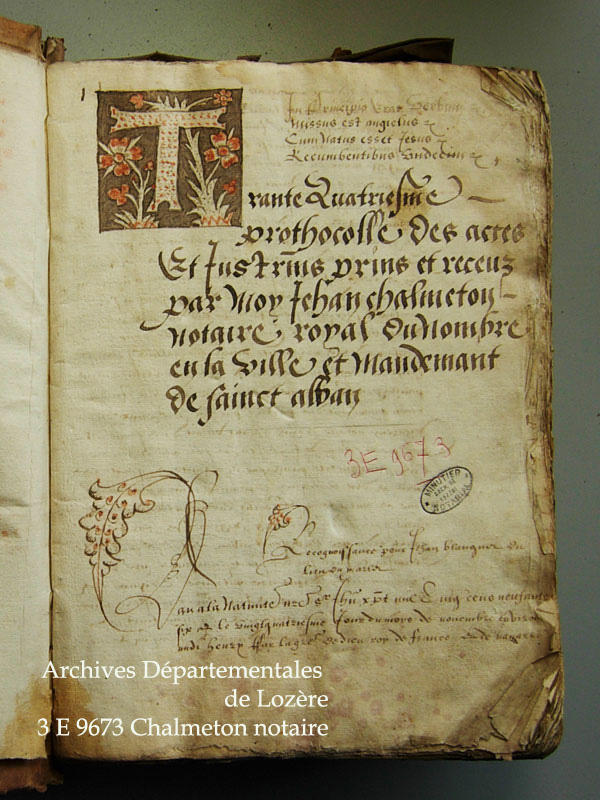 1
In Principio Erat Verbum
Missus est angelus
Cum Natus esset Jesus
Recumbentibus Undecim
Trante Quatriesme
prothocolle des actes
Et Instrumens prins et receuz
par Moy Jehan chalmeton
Notaire royal du Nombre
en la ville et Mandemant
de sainct alban
3E 9673
MINUTIER
NOTARIAL
Recognoissance pour Jehan
lieu du
L an a la Nativité nre Sr Jhu xpt mil Cinq cens
six et le vingtquatriesme Jour du moys de novembre
henry par la grace de dieu roy de france et de navarre
Archives Départementales
de Lozère
3 E 9673 Chalmeton notaire